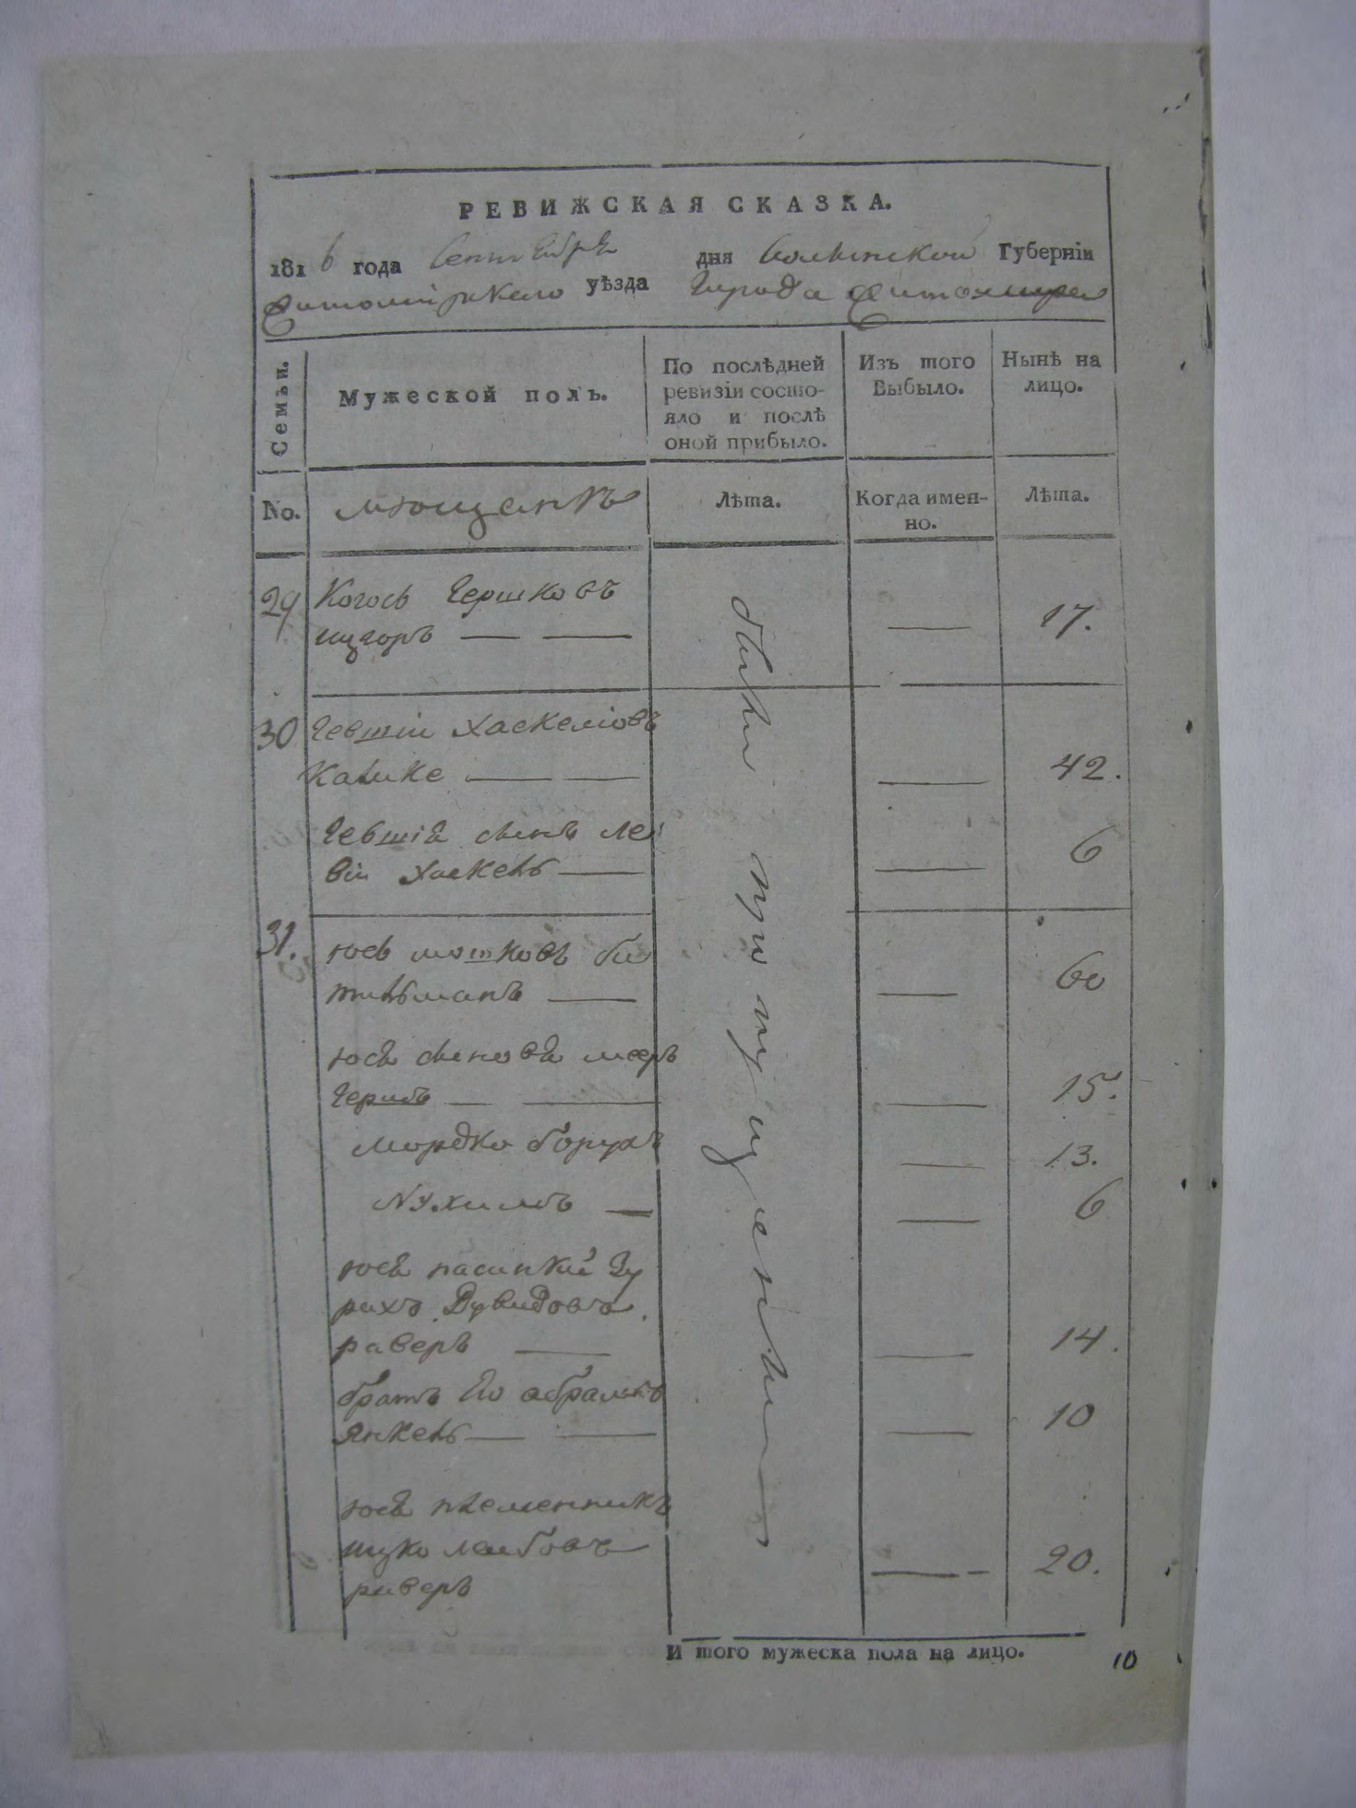 РЕВИЖСКАЯ СКАЗКА.
1816 года Сентября дня Волынской Губерніи
Житомірскаго уѣзда Города Житомира
Семьи.
Мужеской полъ.
По послѣдней ревизіи состояло и послѣ оной прибыло.
Изъ того Выбыло.
Нынѣ на лицо.
No.
мющанкъ
Лѣта.
Когда именно.
Лѣта.
29 Когосъ Гершковъ
— — — 17.
30 Гевшій Хаскеліовъ
— — — 42.
Гевшія сынъ Ле
вій Хаскель — — 6
31. Юсь Мошковъ би
тельманъ — — 60
Юся сынова Меер
Гершъ — — — 15.
Мордко Борухъ — 13.
Нухимъ — — 6
Юся пасинки Зу
рихъ Дувидовъ
раверъ — — 14.
братъ Его абрамъ
Янкель — — — 10
Юся племенникъ
ицко Лейбовъ
раверъ — — 20.
были пропущенны
И того мужеска пола на лицо. 10